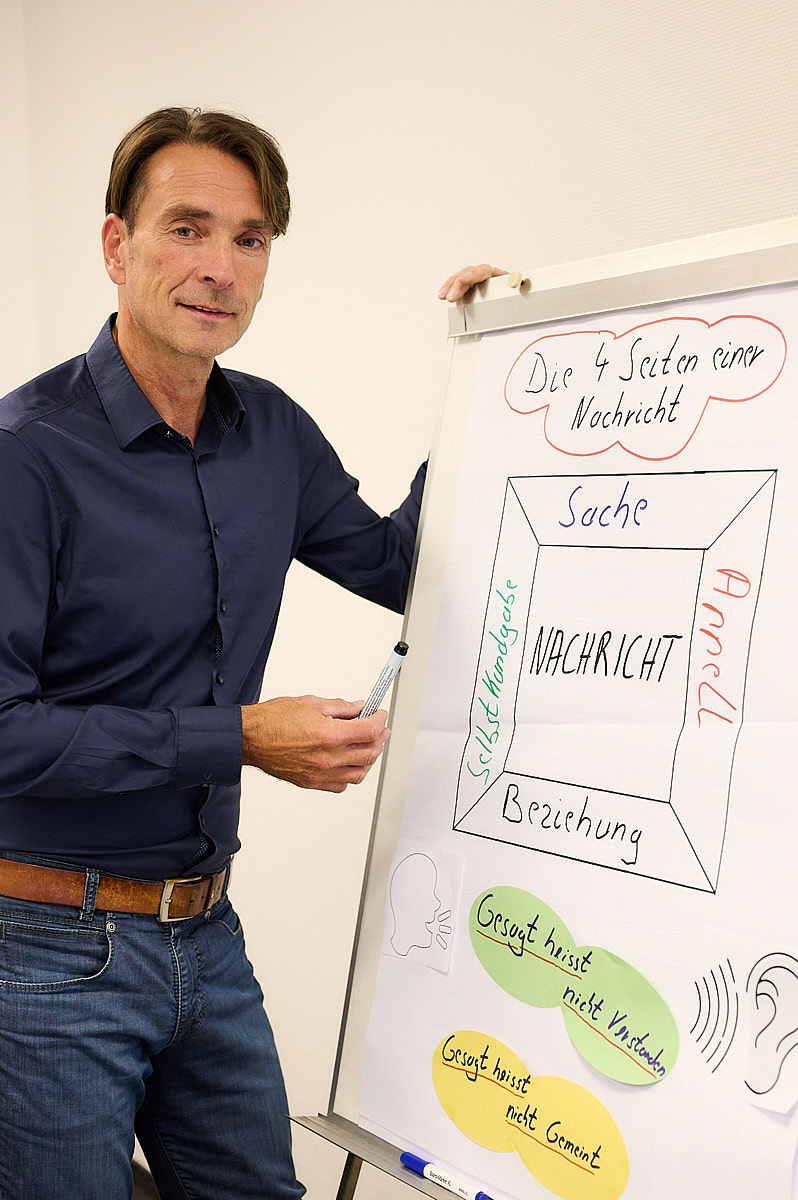 Die 4 Seiten einer
Nachricht
Sache
Selbstkundgabe
NACHRICHT
Appell
Beziehung
Gesagt heisst
nicht Verstanden
Gesagt heisst
nicht Gemeint